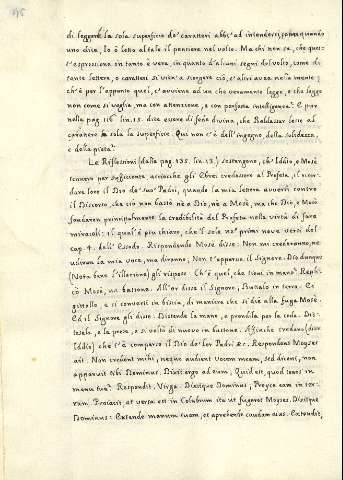 di leggere la sola superficie de' caratteri abbia ad intendersi, come quando
uno dice, Io ò letto al tale il pensiere nel volto. Ma chi non sa, che ques-
ta espressione in tanto è vera, in quanto d'alcuni segni del volto, come di
tante lettere, o caratteri si viene a scorgere ciò, ch'altri avea nella mente;
ch'è per l'appunto quel, ch'avviene ad un che veramente legge, e che legge
non come si voglia, ma con attenzione, e con porfetta intelligenza? E pure
nella pag. 116. lin. 15. dice essere di fede divina, che Baldassar lesse al
carattere la sola la superficie. Qui non c'è dell'ingegno, della solidezza,
e della pietà?
Le Riflessioni (dalla pag. 135. lin. 12.) sostengono, ch'Iddio, e Mosè
tennero per sufficiente acciocchè gli Ebrei credessero al Profeta, il ricor-
dare loro il Dio de' suoi Padri, quando la mia lettera avvertì contro
il Discorso, che ciò non bastò nè a Dio, nè a Mosè, ma che Dio, e Mosè
fondaron principalmente la credibilità del Profeta nella virtù di fare
miracoli: il qual'è più chiaro, che'l sole ne' primi nove versi del
cap. 4. dell'Esodo. Rispondendo Mosè disse: Non mi crederanno, nè
udiran la mia voce, ma diranno, Non t'apparve il Signore. Dio dunque
(Nota bene l'illazione) gli rispose. Ch'è quel, che tieni in mano? Repli-
cò Mosè, un bastone. All'or disse il Signore, Buttalo in terra. E
gittollo, e si convertì in biscia, di maniera che si diè alla fuga Mosè.
Ed il Signore gli disse: Distende la mano, e prendila per la coda. Dis-
tesela, e la prese, e si voltò di nuovo in bastone. Affinchè credano (disse
Iddio) che t'è comparso il Dio de' lor Padri &c. Respondens Moyses
ait. Non credent mihi, neque audient vocem meam, sed dicent, non
apparuit tibi Dominus. Dixit ergo ad eum, Quid est, quod tenes in
manu tua? Respondit. Virga. Dixitque Dominus; Proyce eam in ter-
ram. Proiecit, et versa est in Colubrum ita ut fugeret Moyses. Dixitque
Dominus: Extende manum tuam, et aprehende caudam eius. Extendit,